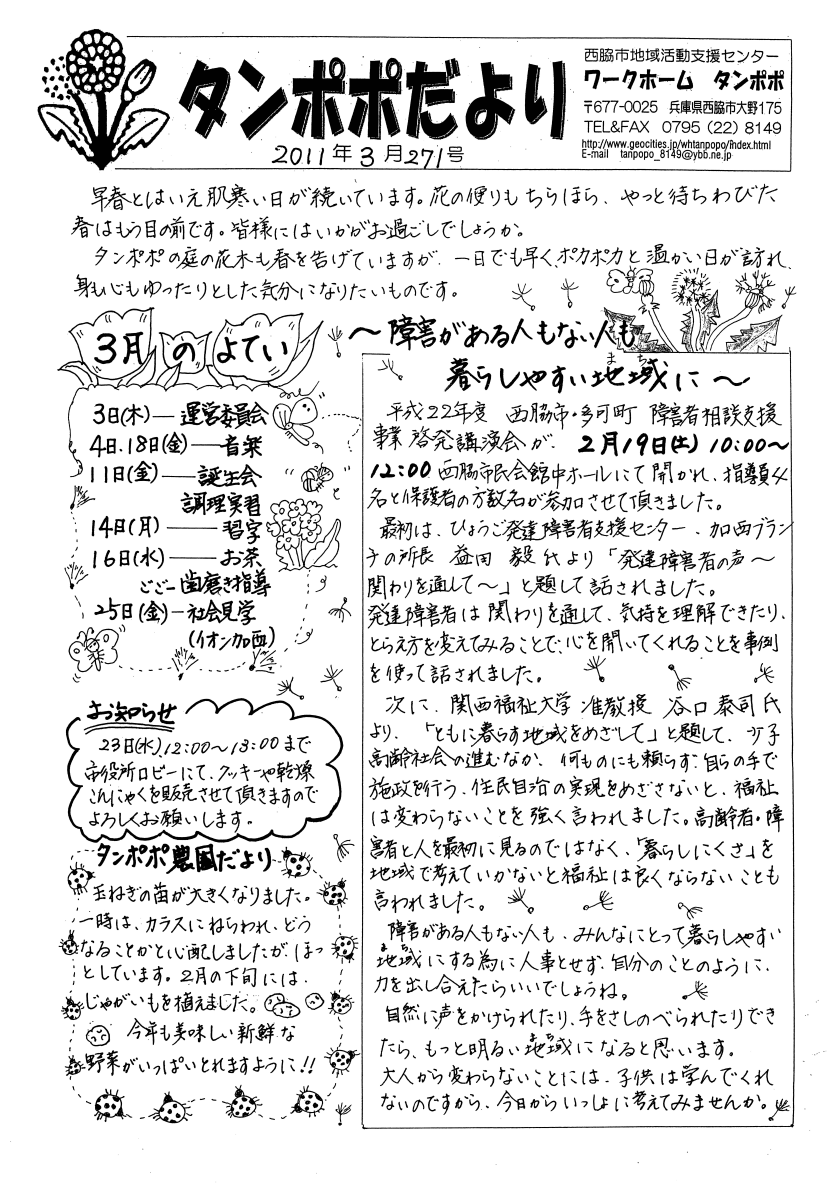 タンポポだより
2011年3月271号
西脇市地域活動支援センター
ワークホーム タンポポ
〒677-0025 兵庫県西脇市大野175
TEL&FAX 0795 (22) 8149
http://www.geocities.jp/whtanpopo/index.html
E-mail tanpopo_8149@ybb.ne.jp
早春とはいえ肌寒い日が続いています。花の便りもちらほら、やっと待ちわびた
春はもう目の前です。皆様にはいかがお過ごしでしょうか。
タンポポの庭の花木も春を告げていますが、一日でも早く、ポカポカと温かい日が訪れ、
身も心もゆったりとした気分になりたいものです。
3月のよてい
3日(木)―運営委員会
4日.18日(金)―音楽
11日(金)―誕生会
調理実習
14日(月)―習字
16日(水)―お茶
ごご―歯磨き指導
25日(金)―社会見学
(イオン加西)
お知らせ
23日(水)、12:00～13:00まで
市役所ロビーにて、クッキーや乾燥
こんにゃくを販売させて頂きますので
よろしくお願いします。
タンポポ農園だより
玉ねぎの苗が大きくなりました。
一時は、カラスにねらわれ、どう
なることかと心配しましたが、ほっ
としています。2月の下旬には、
じゃがいもを植えました。
今年も美味しい新鮮な
野菜がいっぱいとれますように!!
～障害がある人もない人も
暮らしやすい地域に～
まち
平成22年度 西脇市・多可町 障害者相談支援
事業啓発講演会が、2月19日(土)10:00～
12:00 西脇市民会館中ホールにて開かれ、指導員4
名と保護者の方数名が参加させて頂きました。
最初は、ひょうご発達障害者支援センター、加西ブラン
チの所長 益田 毅氏より「発達障害者の声～
関わりを通して～」と題して話されました。
発達障害者は関わりを通して、気持を理解できたり、
とらえ方を変えてみることで、心を開いてくれることを事例
を使って話されました。
次に、関西福祉大学 准教授 谷口泰司氏
より、「ともに暮らす地域をめざして」と題して、少子
高齢社会の進むなか、何ものにも頼らず、自らの手で
施政を行う、住民自治の実現をめざさないと、福祉
は変わらないことを強く言われました。高齢者・障
害者と人を最初に見るのではなく、「暮らしにくさ」を
地域で考えていかないと福祉は良くならないことも
言われました。
障害がある人もない人も、みんなにとって暮らしやすい
まち
地域にする為に人事とせず、自分のことのように、
力を出し合えたらいいでしょうね。
自然に声をかけられたり、手をさしのべられたりでき
まち
たら、もっと明るい地域になると思います。
大人から変わらないことには、子供は学んでくれ
ないのですから、今日からいっしょに考えてみませんか。